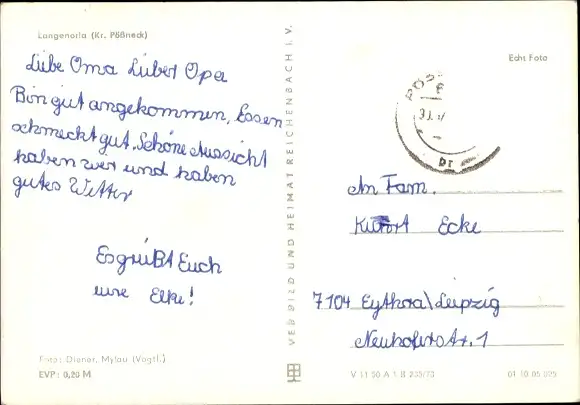 Langenorla (Kr. Pößneck)
Liebe Oma Lieber Opa
Bin gut angekommen, Essen
schmeckt gut. Schöne Aussicht
haben wir und haben
gutes Wetter
Es grüßt Euch
eure Elke!
Foto: Diener, Mylau (Vogtl.)
EVP: 0,20 M
VEB BILD UND HEIMAT REICHENBACH I. V.
Echt Foto
An Fam.
Kurort Ecke
7104 Eythra/Leipzig
Neuhofstr. 1
V 11 50 A 1 B 235/73
01 10 05 025